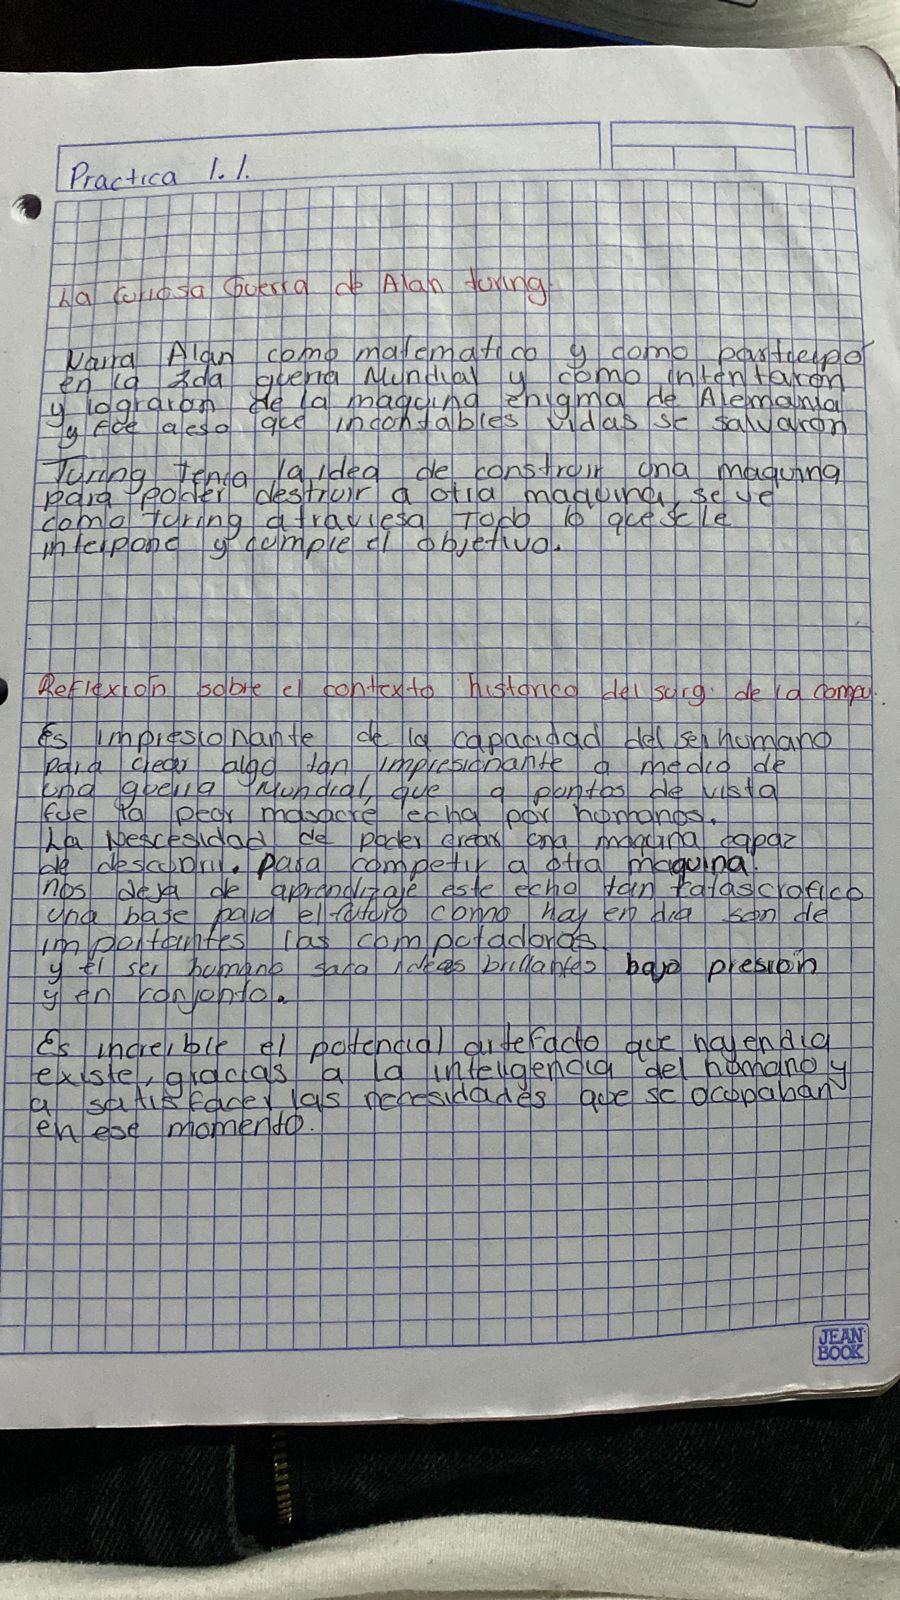 Practica 1.1.
La Curiosa Guerra de Alan turing
Narra Alan como matematico y como participo
en la 2da guerra Mundial y como intentaron
y lograron de la maquina enigma de Alemania
y fue aeso que incontables vidas se salvaron
Turing tenia la idea de construir una maquina
para poder destruir a otra maquina, se ve
como turing atraviesa Todo lo que se le
interpone y cumple el objetivo.
Reflexión sobre el contexto historico del surg. de la compu.
Es impresionante de la capacidad del ser humano
para crear algo tan impresionante a medio de
una guerra Mundial, que a puntos de vista
fue la peor masacre echa por humanos.
La Nescesidad de poder crear una maquina capaz
de descubrir. para competir a otra maquina.
nos deja de aprendizaje este echo tan catascrofico
una base para el futuro como hay en dia son de
importantes las computadoras.
y el ser humano saca ideas brillantes bajo presion
y en conjunto.
Es increible el potencial artefacto que hay en dia
existe, gracias a la inteligencia del humano y
a satisfacer las necesidades que se ocupaban
en ese momento.
JEAN
BOOK